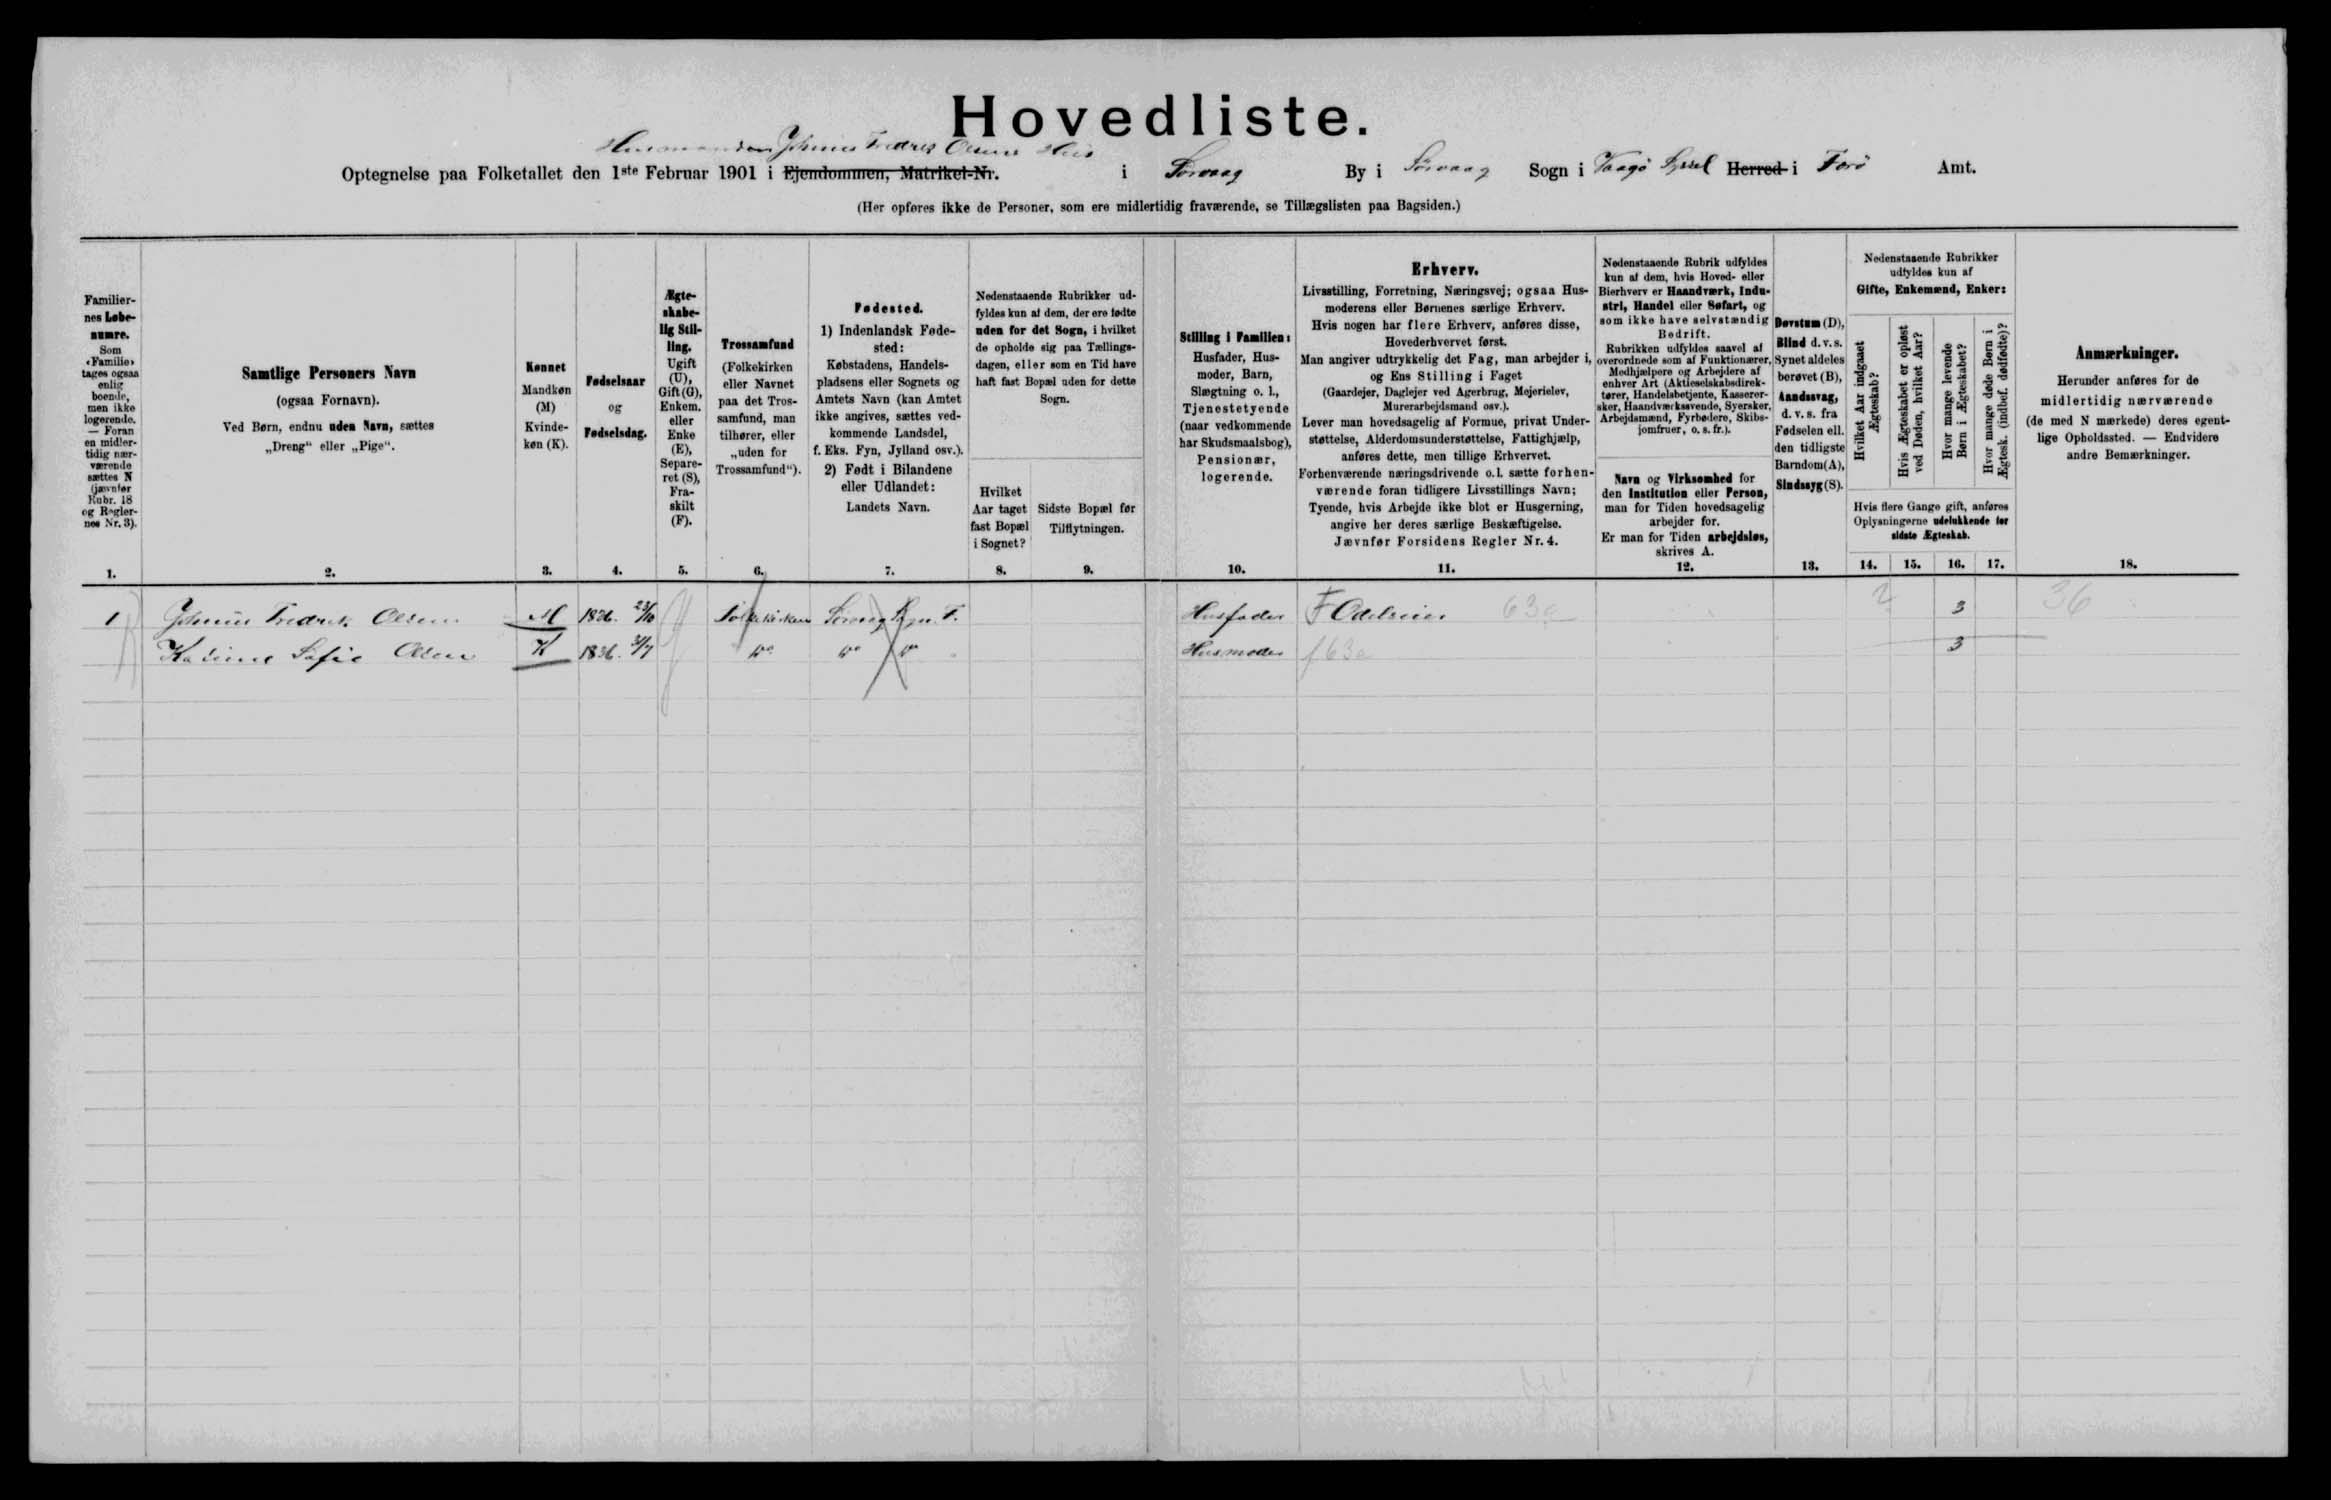 Hovedliste.
Husmanden Johannes Fredrik Olsens Hus
Optegnelse paa Folketallet den 1ste Februar 1901 i Ejendommen, Matrikel-Nr. i Sørvaag By i Sørvaag Sogn i Vaagø Syssel Herred i Færø Amt.
(Her opføres ikke de Personer, som ere midlertidig fraværende, se Tillægslisten paa Bagsiden.)
Familier-
nes Løbe-
numre.
Som
‹Familie›
tages ogsaa
enlig
boende,
men ikke
logerende.
— Foran
en midler-
tidig nær-
værende
sættes N
(jævnfør
Rubr. 18
og Regler-
nes Nr. 3).
1.
Samtlige Personers Navn
(ogsaa Fornavn).
Ved Børn, endnu uden Navn, sættes
„Dreng“ eller „Pige“.
2.
Kønnet
Mandkøn
(M)
Kvinde-
køn (K).
3.
Fødselsaar
og
Fødselsdag.
4.
Ægte-
skabe-
lig Stil-
ling.
Ugift
(U),
Gift (G),
Enkem.
eller
Enke
(E),
Separe-
ret (S),
Fra-
skilt
(F).
5.
Trossamfund
(Folkekirken
eller Navnet
paa det Tros-
samfund, man
tilhører, eller
„uden for
Trossamfund“).
6.
Fødested.
1) Indenlandsk Føde-
sted:
Købstadens, Handels-
pladsens eller Sognets og
Amtets Navn (kan Amtet
ikke angives, sættes ved-
kommende Landsdel,
f. Eks. Fyn, Jylland osv.).
2) Født i Bilandene
eller Udlandet:
Landets Navn.
7.
Nedenstaaende Rubrikker ud-
fyldes kun af dem, der ere fødte
uden for det Sogn, i hvilket
de opholde sig paa Tællings-
dagen, eller som en Tid have
haft fast Bopæl uden for dette
Sogn.
Hvilket
Aar taget
fast Bopæl
i Sognet?
8.
Sidste Bopæl før
Tilflytningen.
9.
Stilling i Familien:
Husfader, Hus-
moder, Barn,
Slægtning o. l.,
Tjenestetyende
(naar vedkommende
har Skudsmaalsbog),
Pensionær,
logerende.
10.
Erhverv.
Livsstilling, Forretning, Næringsvej; ogsaa Hus-
moderens eller Børnenes særlige Erhverv.
Hvis nogen har flere Erhverv, anføres disse,
Hovederhvervet først.
Man angiver udtrykkelig det Fag, man arbejder i,
og Ens Stilling i Faget
(Gaardejer, Daglejer ved Agerbrug, Mejerielev,
Murerarbejdsmand osv.).
Lever man hovedsagelig af Formue, privat Under-
støttelse, Alderdomsunderstøttelse, Fattighjælp,
anføres dette, men tillige Erhvervet.
Forhenværende næringsdrivende o.l. sætte forhen-
værende foran tidligere Livsstillings Navn;
Tyende, hvis Arbejde ikke blot er Husgerning,
angive her deres særlige Beskæftigelse.
Jævnfør Forsidens Regler Nr. 4.
11.
Nedenstaaende Rubrik udfyldes
kun af dem, hvis Hoved- eller
Bierhverv er Haandværk, Indu-
stri, Handel eller Søfart, og
som ikke have selvstændig
Bedrift.
Rubrikken udfyldes saavel af
overordnede som af Funktionærer,
Medhjælpere og Arbejdere af
enhver Art (Aktieselskabsdirek-
tører, Handelsbetjente, Kasserer-
sker, Haandværkssvende, Syersker,
Arbejdsmænd, Fyrbødere, Skibs-
jomfruer, o. s. fr.).
Navn og Virksomhed for
den Institution eller Person,
man for Tiden hovedsagelig
arbejder for.
Er man for Tiden arbejdsløs,
skrives A.
12.
Døvstum (D),
Blind d. v. s.
Synet aldeles
berøvet (B),
Aandssvag,
d. v. s. fra
Fødselen ell.
den tidligste
Barndom (A),
Sindssyg (S).
13.
Nedenstaaende Rubrikker
udfyldes kun af
Gifte, Enkemænd, Enker:
Hvilket Aar indgaaet
Ægteskab?
Hvis Ægteskabet er opløst
ved Døden, hvilket Aar?
Hvor mange levende
Børn i Ægteskabet?
Hvor mange døde Børn i
Ægtesk. (indbef. dødfødte)?
Hvis flere Gange gift, anføres
Oplysningerne udelukkende for
sidste Ægteskab.
14. 15. 16. 17.
Anmærkninger.
Herunder anføres for de
midlertidig nærværende
(de med N mærkede) deres egent-
lige Opholdssted. — Endvidere
andre Bemærkninger.
18.
1 Fredrik Olsen M 1826. 23/10 Folkekirken Sørvaag Husfader 63a 2 3 36
Sofie Olsen K 1836. Do Do Do Husmoder 63a 3